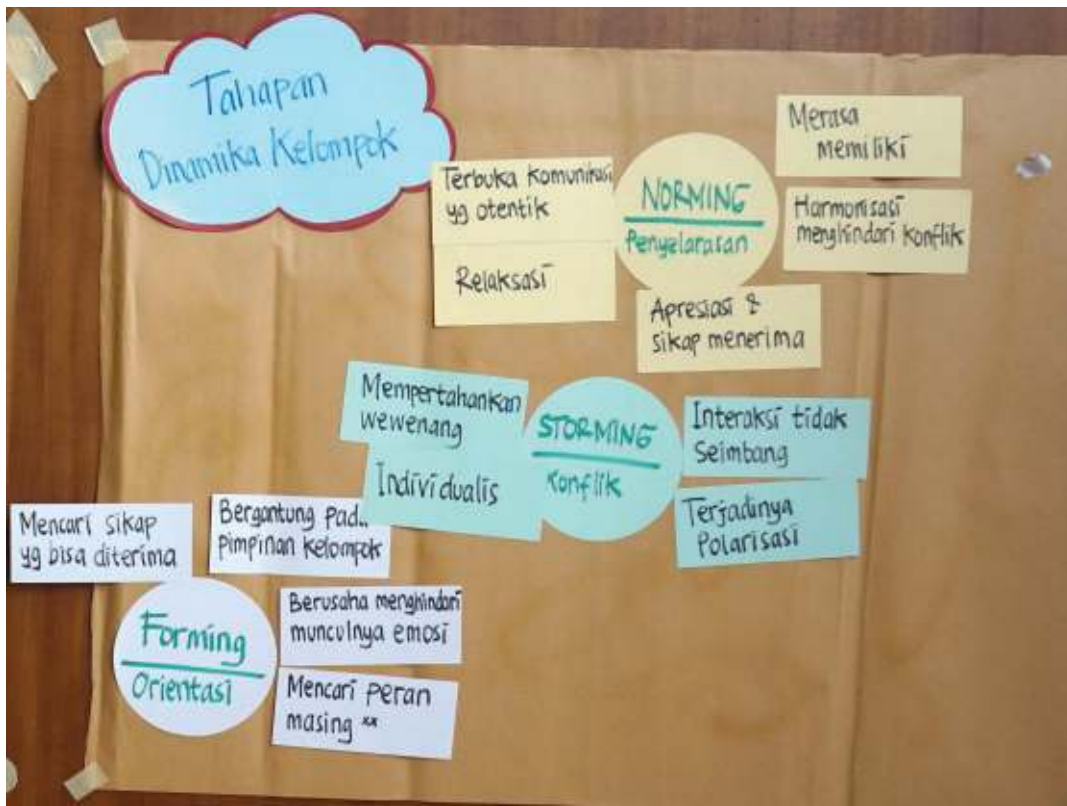 Tahapan
Dinamika Kelompok
Terbuka komunikasi
yg otentik
Relaksasi
NORMING
Penyelarasan
Merasa
memiliki
Harmonisasi
menghindari konflik
Apresiasi &
sikap menerima
Mempertahankan
wewenang
Individualis
STORMING
Konflik
Interaksi tidak
Seimbang
Terjadinya
Polarisasi
Mencari sikap
yg bisa diterima
Bergantung pada
pimpinan kelompok
Forming
Orientasi
Berusaha menghindari
munculnya emosi
Mencari peran
masing "